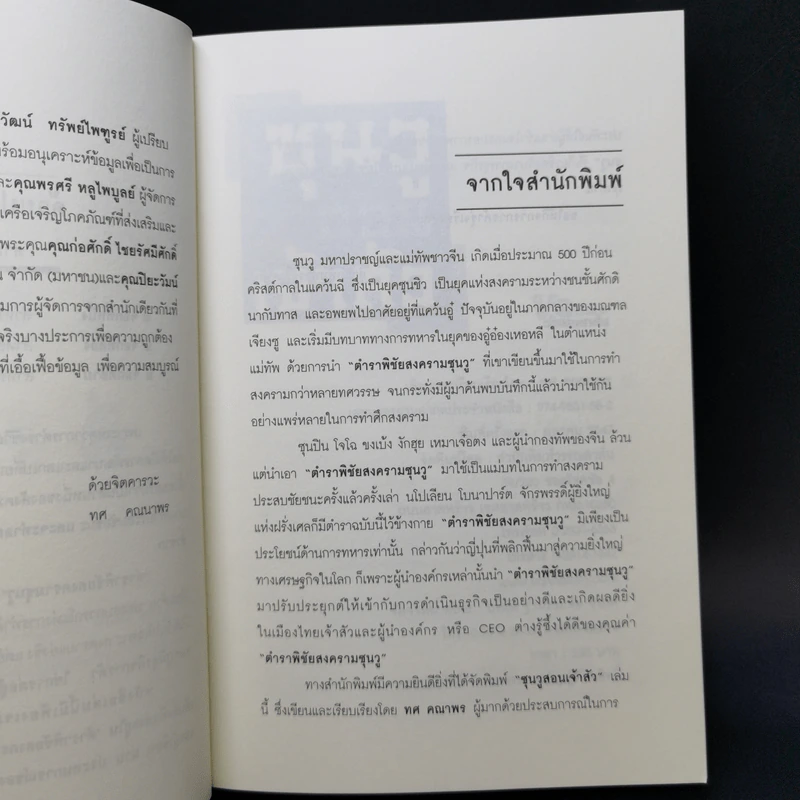 วัฒน์ ทรัพย์ไพฑูรย์ ผู้เปรียบ
ร้อมอนุเคราะห์ข้อมูลเพื่อเป็นการ
ละคุณพรศรี หลูไพบูลย์ ผู้จัดการ
เครือเจริญโภคภัณฑ์ที่ส่งเสริมและ
พระคุณคุณก่อศักดิ์ ไชยรัศมีศักดิ์
น จำกัด (มหาชน)และคุณปิยะวัฒน์
มการผู้จัดการจากสำนักเดียวกันที่
จริงบางประการเพื่อความถูกต้อง
ที่เอื้อเฟื้อข้อมูล เพื่อความสมบูรณ์
ด้วยจิตคารวะ
ทศ คณนาพร
จากใจสำนักพิมพ์
ซุนวู มหาปราชญ์และแม่ทัพชาวจีน เกิดเมื่อประมาณ 500 ปีก่อน
คริสต์กาลในแคว้นฉี ซึ่งเป็นยุคชุนชิว เป็นยุคแห่งสงครามระหว่างชนชั้นศักดิ
นากับทาส และอพยพไปอาศัยอยู่ที่แคว้นอู๋ ปัจจุบันอยู่ในภาคกลางของมณฑล
เจียงซู และเริ่มมีบทบาททางการทหารในยุคของอู๋อ๋องเหอหลี ในตำแหน่ง
แม่ทัพ ด้วยการนำ "ตำราพิชัยสงครามซุนวู" ที่เขาเขียนขึ้นมาใช้ในการทำ
สงครามกว่าหลายทศวรรษ จนกระทั่งมีผู้มาค้นพบบันทึกนี้แล้วนำมาใช้กัน
อย่างแพร่หลายในการทำศึกสงคราม
ซุนปิน โจโฉ ขงเบ้ง งักฮุย เหมาเจ๋อตง และผู้นำกองทัพของจีน ล้วน
แต่นำเอา "ตำราพิชัยสงครามซุนวู" มาใช้เป็นแม่บทในการทำสงคราม
ประสบชัยชนะครั้งแล้วครั้งเล่า นโปเลียน โบนาปาร์ต จักรพรรดิ์ผู้ยิ่งใหญ่
แห่งฝรั่งเศสก็มีตำราฉบับนี้ไว้ข้างกาย "ตำราพิชัยสงครามซุนวู" มิเพียงเป็น
ประโยชน์ด้านการทหารเท่านั้น กล่าวกันว่าญี่ปุ่นที่พลิกฟื้นมาสู่ความยิ่งใหญ่
ทางเศรษฐกิจในโลก ก็เพราะผู้นำองค์กรเหล่านั้นนำ "ตำราพิชัยสงครามซุนวู"
มาปรับประยุกต์ให้เข้ากับการดำเนินธุรกิจเป็นอย่างดีและเกิดผลดียิ่ง
ในเมืองไทยเจ้าสัวและผู้นำองค์กร หรือ CEO ต่างรู้ซึ้งได้ดีของคุณค่า
"ตำราพิชัยสงครามซุนวู"
ทางสำนักพิมพ์มีความยินดียิ่งที่ได้จัดพิมพ์ "ซุนวูสอนเจ้าสัว" เล่ม
นี้ ซึ่งเขียนและเรียบเรียงโดย ทศ คณาพร ผู้มากด้วยประสบการณ์ในการ